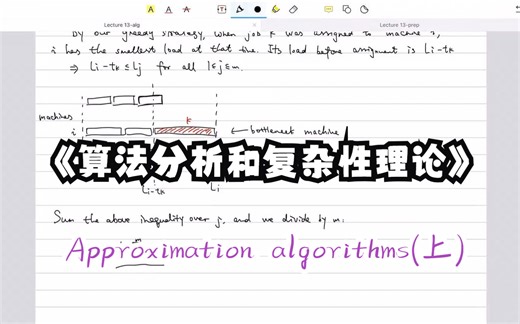 Lecture 13-alg
Lecture 13-prep
By our greedy strategy, when job k was assigned to machine i,
i has the smallest load at that time. Its load before assigment is Li-tk
⇒ Li-tk ≤ Lj for all 1≤j≤m.
machines
k
i
← bottleneck machine
《算法分析和复杂性理论》
Li-tk
Li
Sum the above inequality over j, and we divide by m:
m
Approximation algorithms(上)